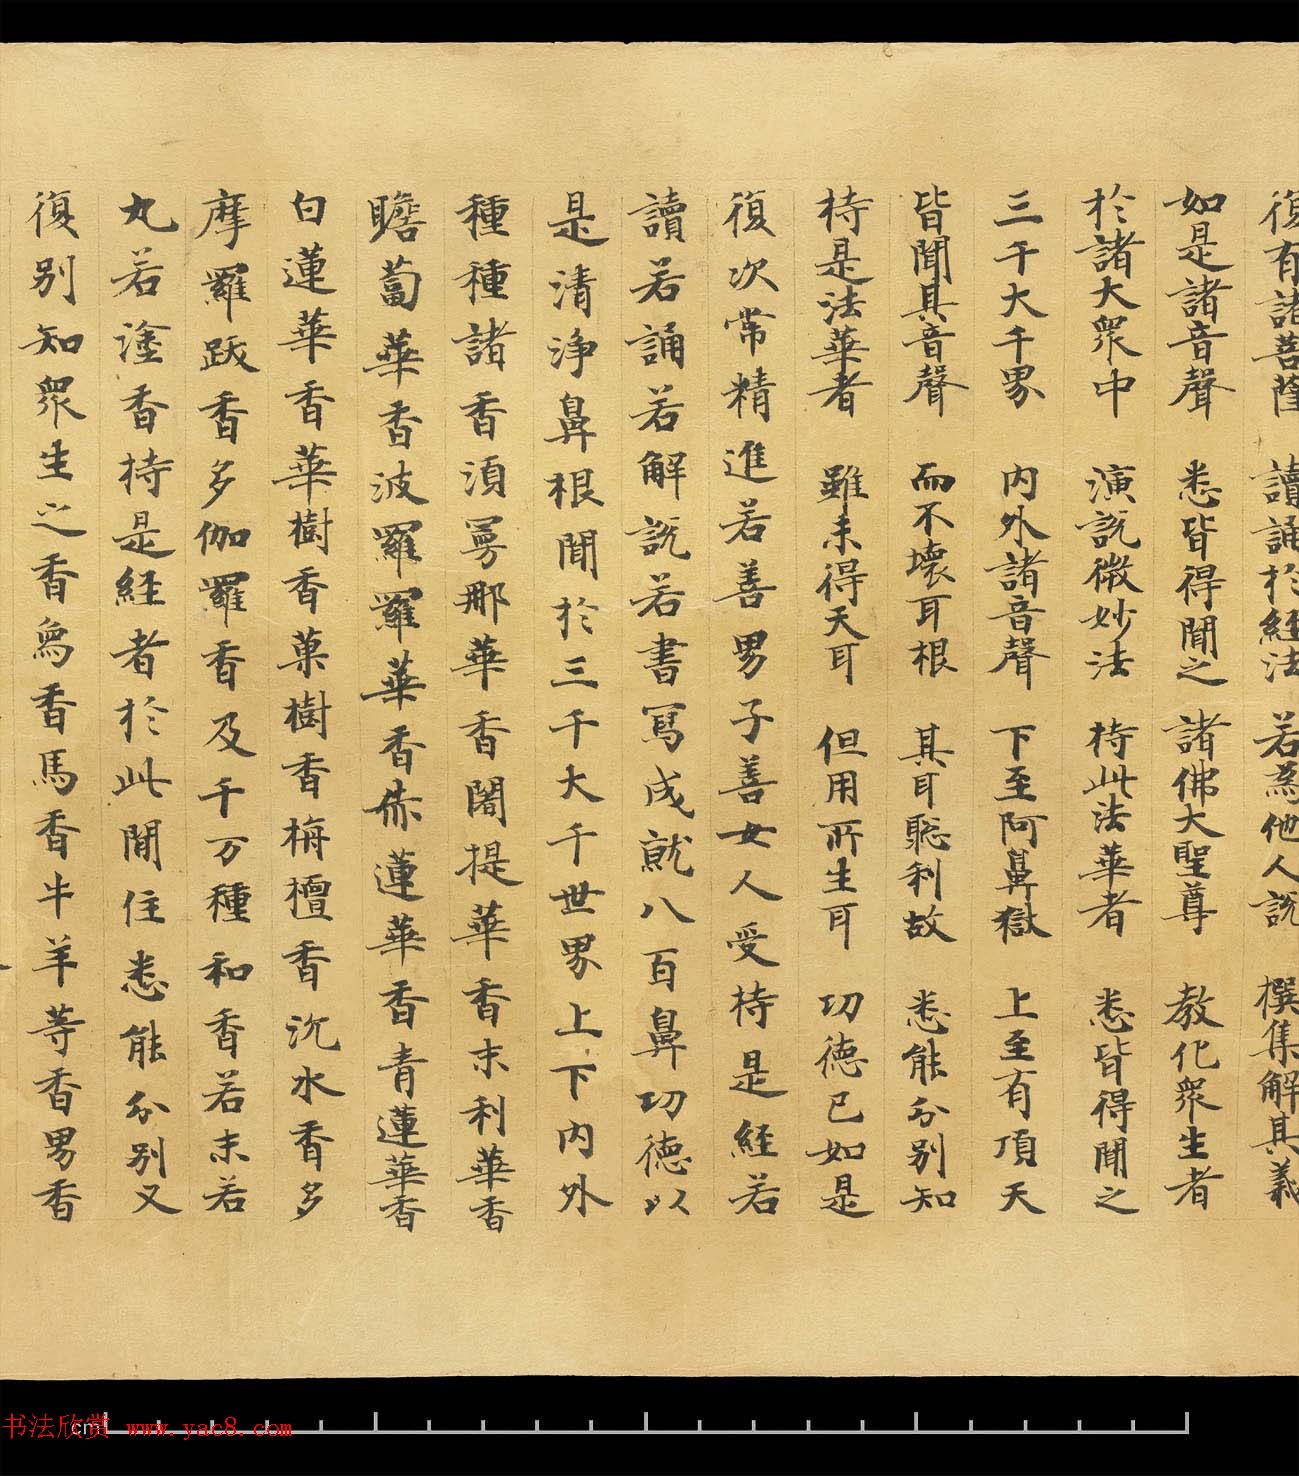 復有諸菩薩 讀誦於經法 若為他人說 撰集解其義
如是諸音聲 悉皆得聞之 諸佛大聖尊 教化眾生者
於諸大眾中 演說微妙法 持此法華者 悉皆得聞之
三千大千界 內外諸音聲 下至阿鼻獄 上至有頂天
皆聞其音聲 而不壞耳根 其耳聡利故 悉能分別知
持是法華者 雖未得天耳 但用所生耳 功德已如是
復次常精進若善男子善女人受持是經若
讀若誦若解說若書寫成就八百鼻功德以
是清淨鼻根聞於三千大千世界上下內外
種種諸香須曼那華香闍提華香末利華香
瞻蔔華香波羅羅華香赤蓮華香青蓮華香
白蓮華香華樹香菓樹香栴檀香沉水香多
摩羅跋香多伽羅香及千万種和香若末若
丸若塗香持是經者於此間住悉能分別又
復別知眾生之香鳥香馬香牛羊等香男香
书法欣赏 www.yac8.com
cm